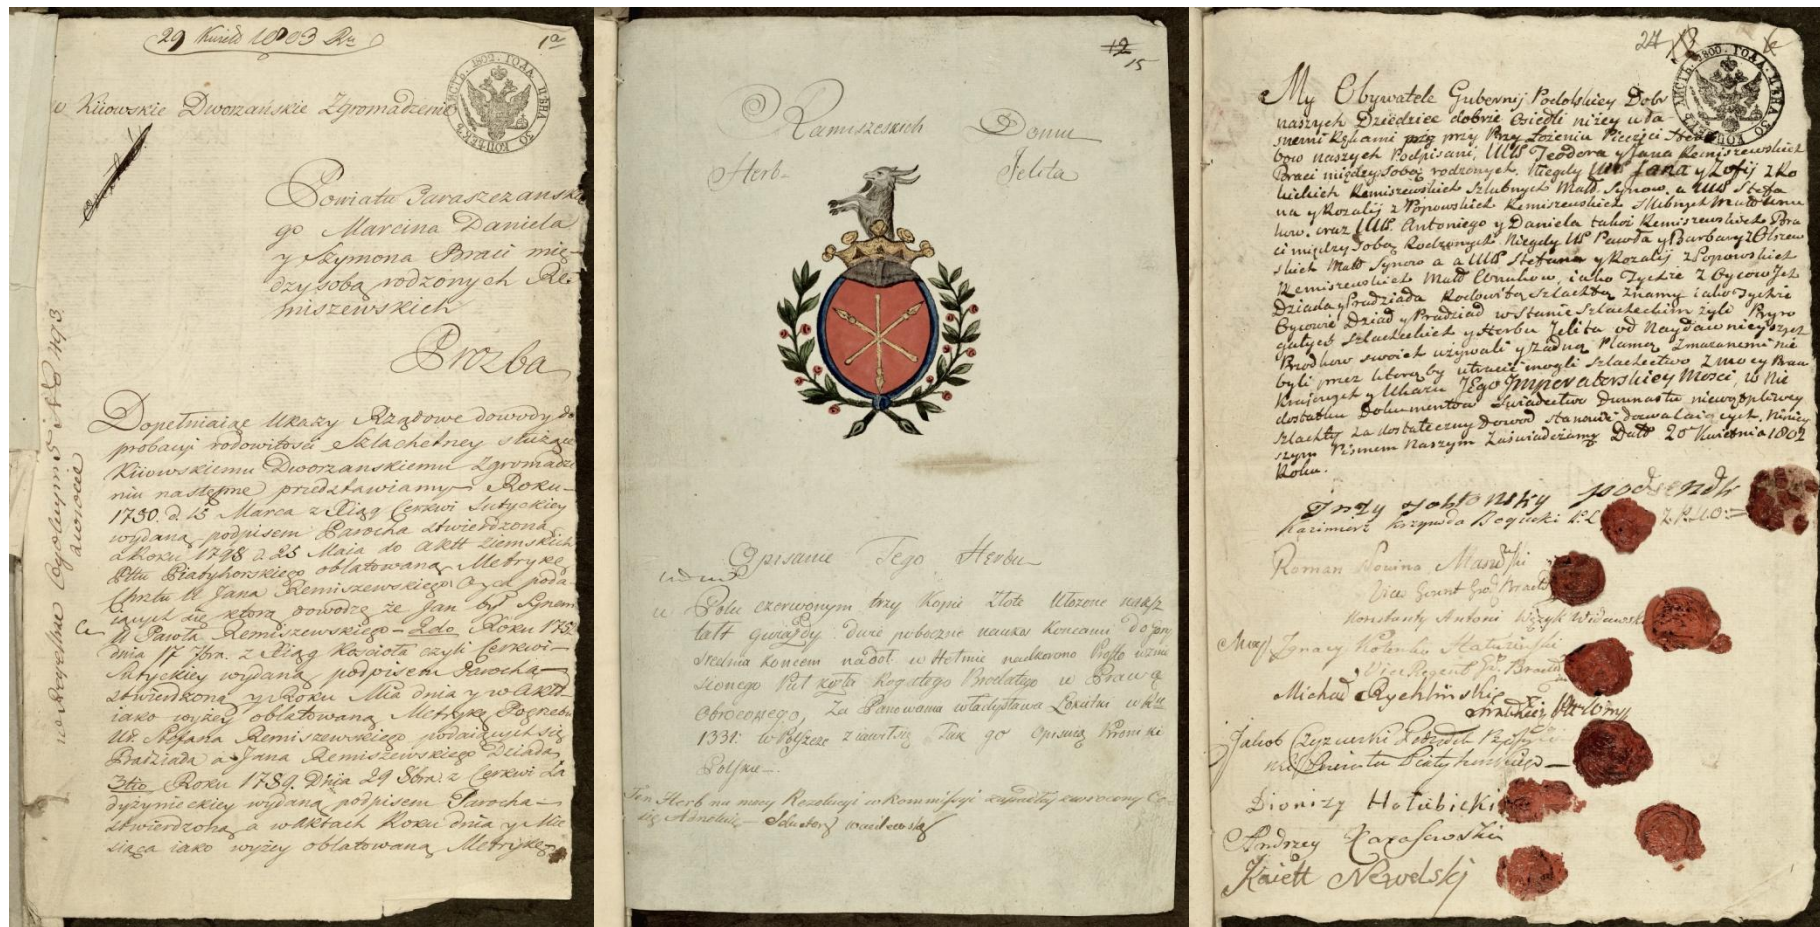 29 Kwiet 1803 Ru
1a
ЛИСТЪ. 1802. ГОДА. ЦѢНА 30 КОПѢЕКЪ
w Kiiowskie Dworzańskie Zgromadzenie
Powiatu Taraszczansk
go Marcina Daniela
y Szymona Braci mię-
dzy sobą rodzonych Re-
miszewskich
Prozba
Dopełniaiąc Ukazy Rządowe dowody do
probacyi rodowitości Szlachetney służące
Kiiowskiemu Dworzanskiemu Zgromadze
niu następne przedstawiamy Roku
1730. d. 15 Marca z Xiąg Cerkwi Łutyckiey
wydaną podpisem Parocha stwierdzoną
a Roku 1798 d. 25 Maia do Aktt Ziemskich
Pttu Piatyhorskiego oblatowaną Metrykę
Chrztu U Jana Remiszewskiego Oyca poda
iących się ktorą dowodzę że Jan był Synem
U Pawła Remiszewskiego – 2do Roku 175
dnia 17 7bra. z Xiąg Kościoła czyli Cerkwi
Łutyckiey wydaną podpisem Parocha
stwierdzoną y Roku Mca dnia y w Aktt
iako wyżey oblatowaną Metrykę Pogrebu
Ur. Stefana Remiszewskiego podaiących się
Pradziada a Jana Remiszewskiego Dziada
3tio Roku 1789. Dnia 29 8bra. z Cerkwi Ła
dyżynieckiey wydaną podpisem Parocha
stwierdzoną a w Aktach Roku dnia y Mie
siąca iako wyżey oblatowaną Metrykę
12
15
Ramiszeskich Domu
Herb Jelita
Opisanie Tego Herbu
w Polu czerwonym trzy Kopie Złote Ułożone na ksz
tałt gwiazdy dwie poboczne na ukos Koncami do gory
srednia koncem na doł. w Hełmie nad koroną Prosto wznie
sionego Puł kozła Rogatego Brodatego w Prawą
Obroconego, Za Panowania Władysława Łokietka w Ru
1331: w Polszcze ziawił się Tak go Opisuią Kroniki
Polskie.
Ten Herb na mocy Rezolucyi w Kommissyi zapadłey zwrocony Co
się Adnotuie –
24
ЛИСТЪ. 1800. ГОДА. ЦѢНА 30 КОПѢЕКЪ
My Obywatele Gubernij Podolskiey Dobr
naszych Dziedzice dobrze Osiedli niżey wła-
snemi Rękami przy Przyłożeniu Pieczęci Her
bow naszych Podpisani, UUr Teodora y Jana Remiszewskich
Braci między sobą rodzonych. Niegdy UUr Jana y Zofij z Ko
wickich Remiszewskich Szlubnych Małż. Synow. a UUr Stefa
na y Rozalij z Popowskich Remiszewskich Slubnych Małż wnu
kow. oraz UUr. Antoniego y Daniela takoż Remiszewskich Bra
ci między sobą Rodzonych. Niegdy UUr Pawła y Barbary z Olszew
skich Małż Synow a a UUr Stefana y Rozalij z Popowskich
Remiszewskich Małż Wnukow, iako Tychże z Oycow Ich
Dziada y Pradziada Rodowitą Szlachtą znamy iako Tychże
Oycowie Dziad y Pradziad w stanie Szlacheckim żyli Prero
gatyw Szlacheckich y Herbu Jelita od Naydawnieyszych
Przodkow swoich używali y żadną Plamą Zmazanemi nie
byli przez ktorą by utracić mogli szlachectwo z mocy Praw
Kraiowych y Ukazu JEgo Imperatorskiey Mosci, w nie
dostatku Dokumentow Swiadectwo Dwunastu niewątpliwey
szlachty za dostateczny Dowod stanowić dozwalaiących. Niniey
szym Pismem Naszym Zaświadczamy Datt 20 Kwietnia 1802
Roku.
Kazimierz Krzywda Bogucki
Roman Mas
Vice Gerent Grd. Bracła
Konstanty Antoni Wężyk Widawski
Ignacy
Vice Regent Gr. Bracła
Michał Rychlinski
Jakob Czyzewski
Dionizy Hołubicki
Andrzey Karasowski
Kaiett Newelskj